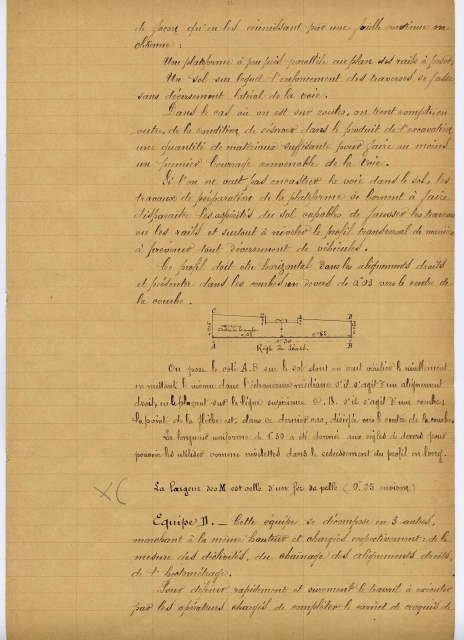 de façon qu'en les réunissant par une feuille continue on
obtienne :
Une plateforme à peu près parallèle au plan des rails à poser,
Un sol sur lequel l'enfoncement des traverses se fasse
sans déversement latéral de la voie.
Dans le cas où on est sur routes, on tient compte, en
outre, de la condition de réserver dans le produit de l'excavation
une quantité de matériaux suffisante pour faire au moins
un premier bourrage convenable de la voie.
Si l'on ne veut pas encastrer la voie dans le sol, les
travaux de préparation de la plateforme se bornent à faire
disparaître les aspérités du sol capables de fausser les traverses
ou les rails et surtout à niveler le profil transversal de manière
à prévenir tout déversement de véhicules.
Ce profil doit être horizontal dans les alignements droits
et présenter dans les courbes un dévers de 0.03 vers le centre de
la courbe.
C
B
A
B
1.30
Règle de dévers.
On pose le côté A.B sur le sol dont on veut vérifier le nivellement
en mettant le niveau dans l'échancrure médiane s'il s'agit d'un alignement
droit, en le plaçant sur la ligne supérieure C.B. s'il s'agit d'une courbe;
la pointe de la flèche est, dans ce dernier cas, dirigée vers le centre de la courbe.
La longueur uniforme de 1.30 a été donnée aux règles de dévers pour
pouvoir les utiliser comme nivelettes dans le redressement du profil en long.
La largeur des M est celle d'un fer de pelle (0.25 environ)
Equipe D. — Cette équipe se décompose en 3 autres,
marchant à la même hauteur et chargées respectivement: de la
mesure des déclivités, du chaînage des alignements droits,
de l'hectométrage.
Pour définir rapidement et sûrement le travail à exécuter
par les opérations chargés de compléter le carnet de croquis de